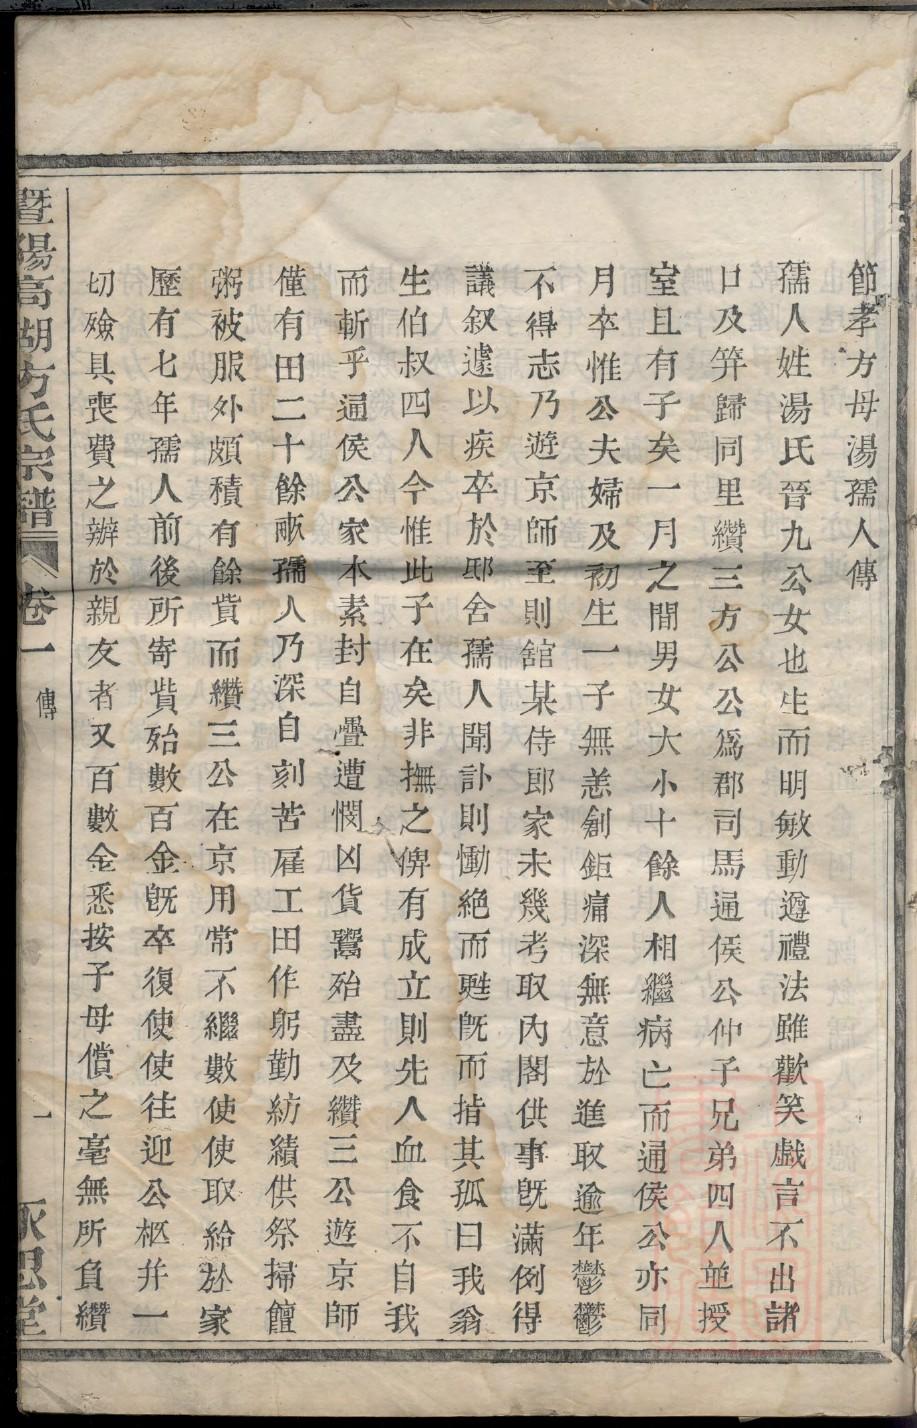 節孝方母湯孺人傳
孺人姓湯氏晉九公女也生而明敏動遵禮法雖歡笑戲言不出諸
口及笄歸同里纘三方公公爲郡司馬通侯公仲子兄弟四人並授
室且有子矣一月之間男女大小十餘人相繼病亡而通侯公亦同
月卒惟公夫婦及初生一子無恙創鉅痛深無意於進取逾年鬱鬱
不得志乃遊京師至則舘某侍郎家未幾考取內閣供事旣滿例得
議叙遽以疾卒於邸舍孺人聞訃則慟絕而甦旣而指其孤曰我翁
生伯叔四人今惟此子在矣非撫之俾有成立則先人血食不自我
而斬乎通侯公家本素封自疊遭憫凶貨鬻殆盡及纘三公遊京師
僅有田二十餘畝孺人乃深自刻苦雇工田作躬勤紡績供祭掃饘
粥被服外頗積有餘貲而纘三公在京用常不繼數使使取給於家
歷有七年孺人前後所寄貲殆數百金旣卒復使使往迎公柩幷一
切殮具喪費之辦於親友者又百數金悉按子母償之毫無所負纘
暨陽高湖方氏宗譜 卷一 傳 一 永思堂